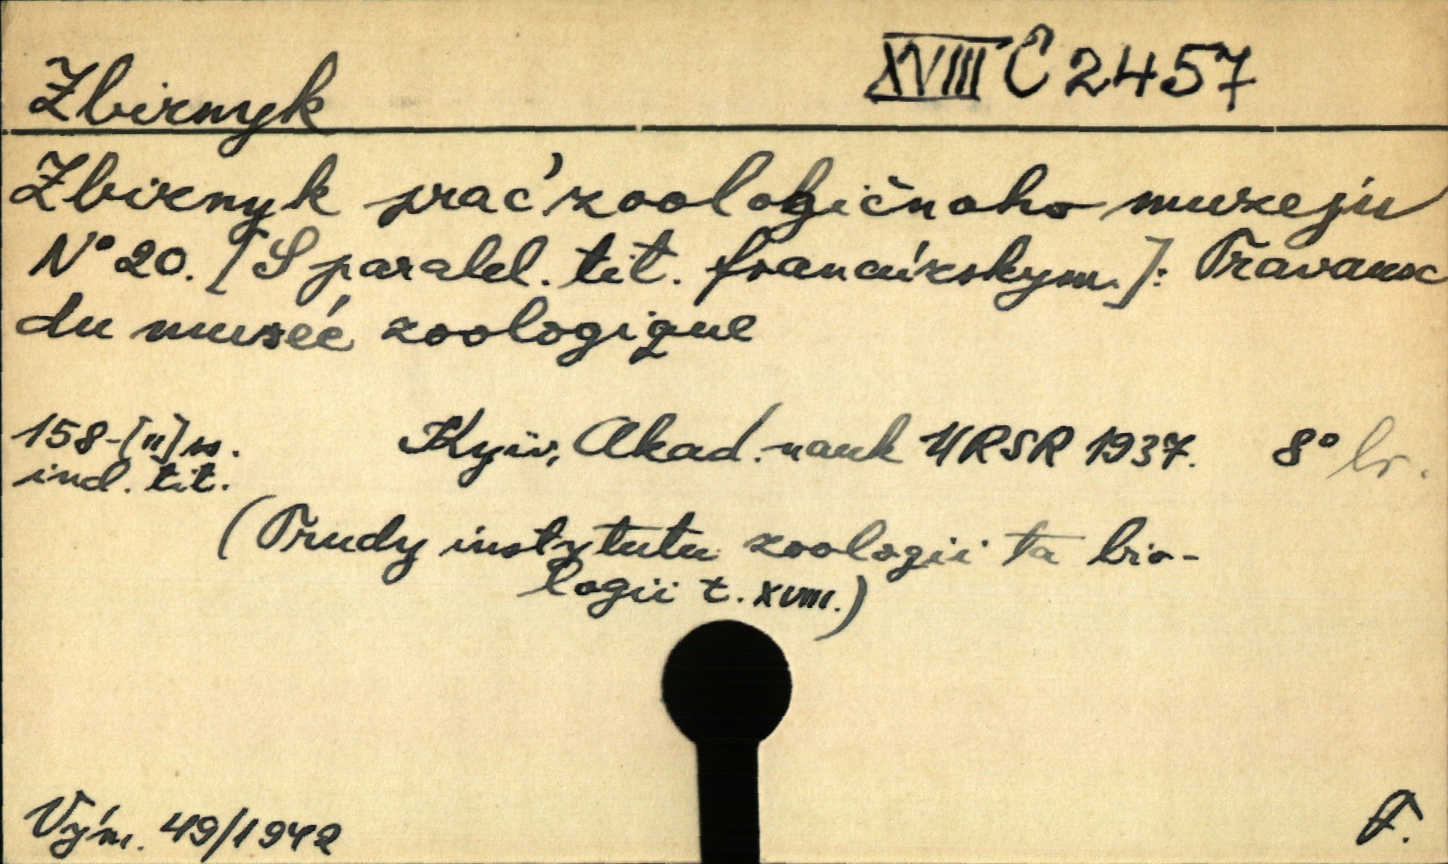 Zbirnyk XVIII Č 2457
Zbirnyk prać zoologičnoho muzeju
N° 20. [S paralel. tit. francúzskym.]: Travaux
du museé zoologique
158-[II] s. Kyiv, Akad. nauk URSR 1937. 8° br.
ind. tit.
(Trudy instytutu zoologii ta bio-
logii t. XVIII.)
Vým. 49/1942 F.